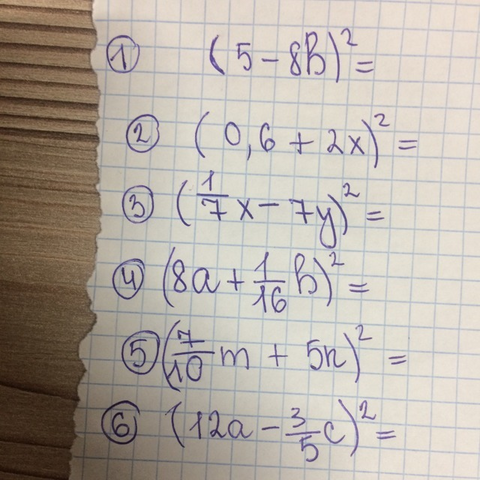 ① (5 - 8b)² =
② (0,6 + 2x)² =
③ (1/7 x - 7y)² =
④ (8a + 1/16 b)² =
⑤ (7/10 m + 5n)² =
⑥ (12a - 3/5 c)² =